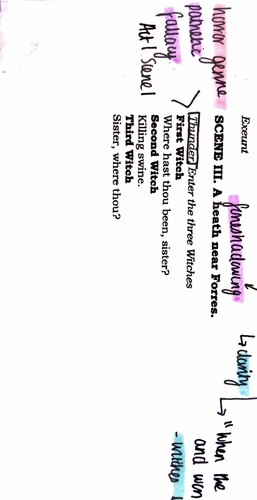 Exeunt
foreshadowing
↳ clarity
↳ "When the
and won
- witches
SCENE III. A heath near Forres.
horror genre
pathetic
fallacy
Act 1 Scene 1
Thunder Enter the three Witches
First Witch
Where hast thou been, sister?
Second Witch
Killing swine.
Third Witch
Sister, where thou?